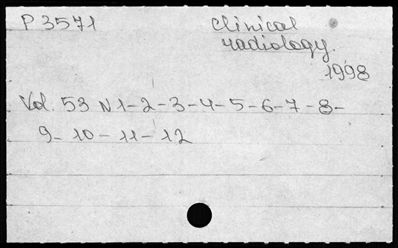 P 3571 clinical
radiology.
1998
Vol. 53 N 1-2-3-4-5-6-7-8-
9-10-11-12